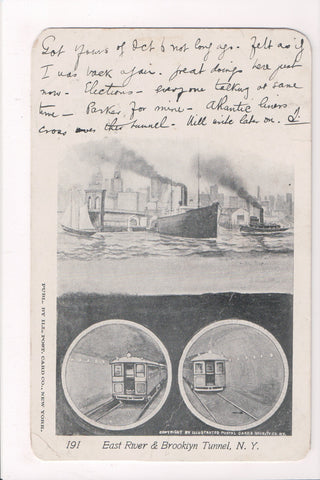 Got yours of Oct 6 not long ago. Felt as if
I was back again. great doings here just
now - Elections - everyone talking at same
time - Parker for mine - Atlantic liners
cross over this tunnel. Will write later on.
PUBL. BY ILL. POST. CARD CO., NEW YORK.
COPYRIGHT BY ILLUSTRATED POSTAL CARD
191 East River & Brooklyn Tunnel, N. Y.